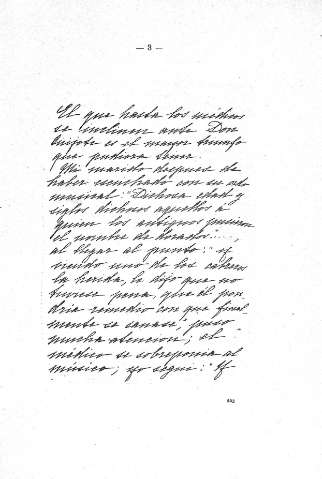 — 3 —
El que hasta los médicos
se inclinen ante Don
Quijote es el mayor triunfo
que pudiera soñar.
Mi marido después de
haber escuchado con su oido
musical: "Dichosa edad y
siglos dichosos aquellos a
quien los antiguos pusieron
el nombre de dorados".....,
al llegar al punto: "y
viendo uno de los cabreros
la herida, le dijo que no
tuviese pena, que él pon-
dría remedio con que fácil-
mente se sanase", puso
mucha atención; el
médico se sobreponía al
músico; yo seguí: "Y